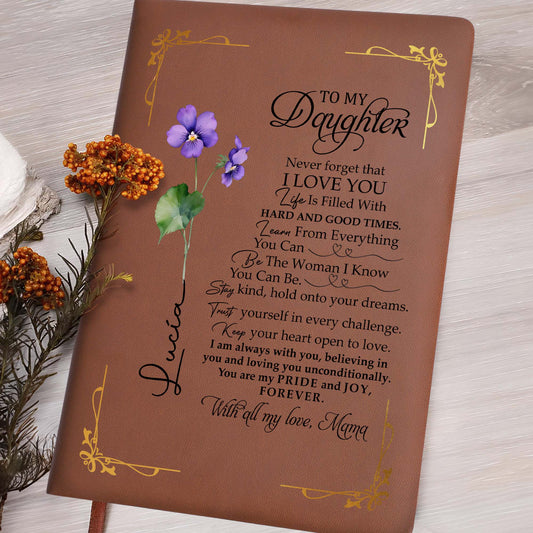 TO MY
Daughter
Never forget that
I LOVE YOU
Life Is Filled With
HARD AND GOOD TIMES.
Learn From Everything
You Can
Be The Woman I Know
You Can Be.
Stay kind, hold onto your dreams.
Trust yourself in every challenge.
Keep your heart open to love.
I am always with you, believing in
you and loving you unconditionally.
You are my PRIDE and JOY,
FOREVER.
With all my love, Mama
Lucía